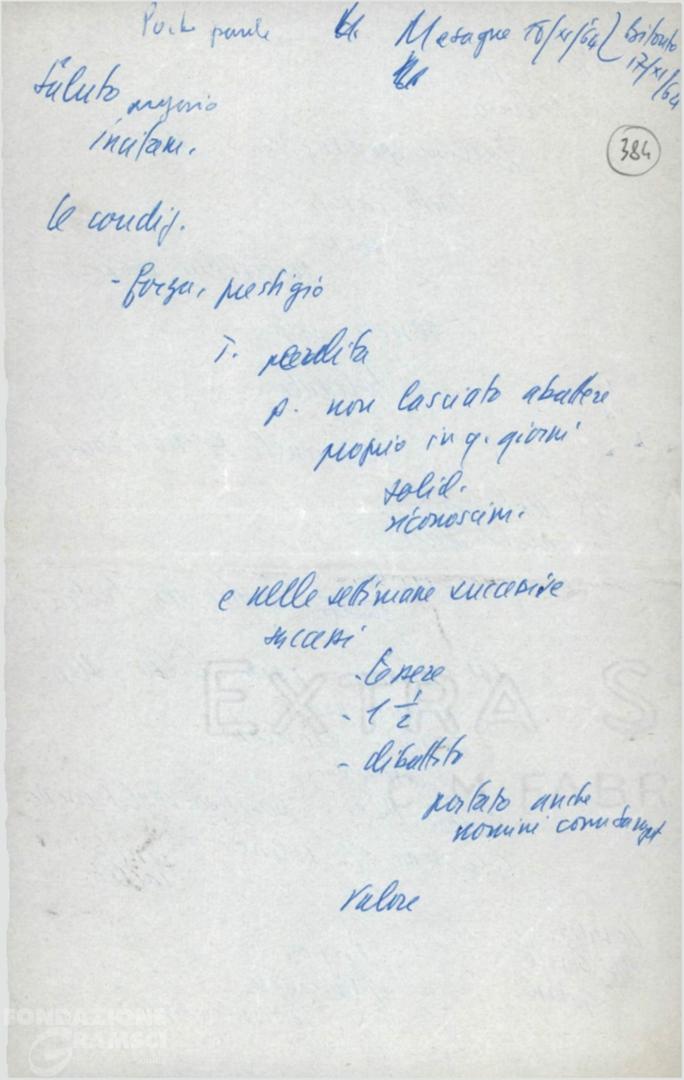 Poche parole Mesagne 16/XI/64) Bitonto
17/XI/64
Saluto
incitam.
384
le condiz.
- forza, prestigio
T. perdita
p. non lasciato abattere
proprio in q. giorni
solid.
riconoscim.
e nelle settimane successive
successi
- tessere
- 1 1/2
- dibattito
portato anche
nomini
valore
EXTRA S
C. M. FABR
FONDAZIONE
GRAMSCI